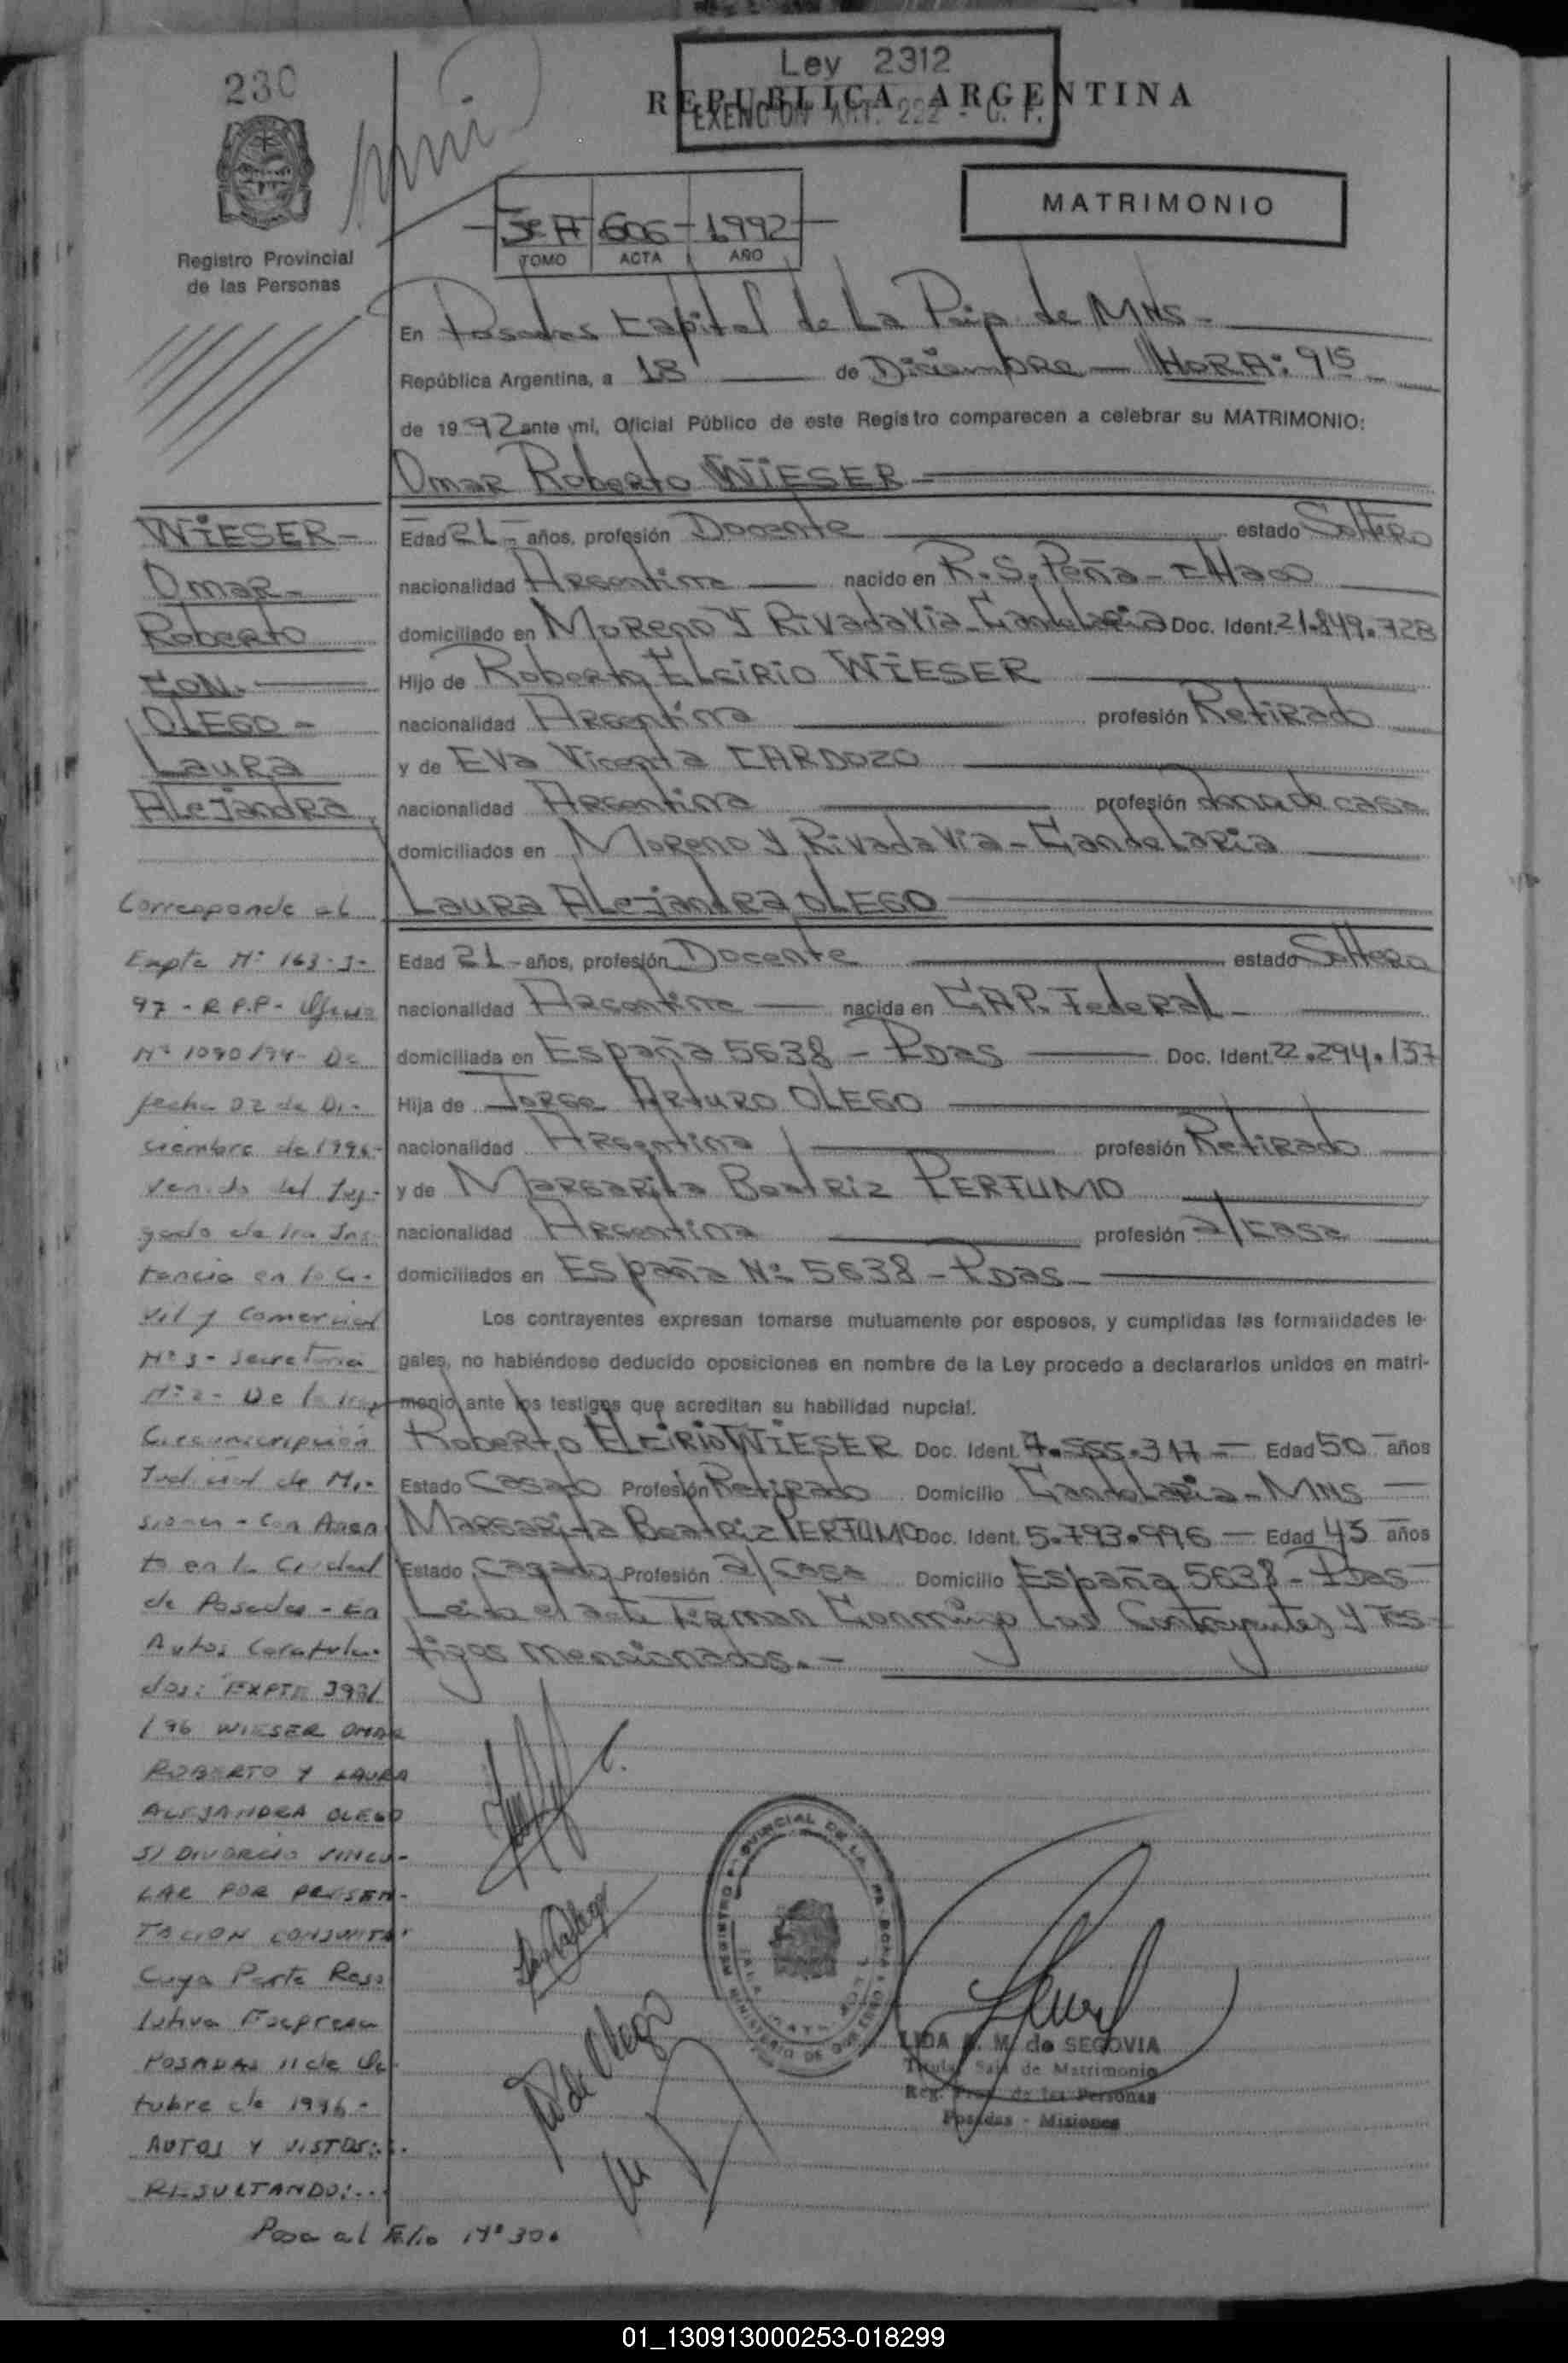 230
Ley 2312
REPUBLICA ARGENTINA
EXENCION ART. 222 - C. F.
MATRIMONIO
3º A 606 - 1992
TOMO ACTA AÑO
Registro Provincial
de las Personas
En Posadas Capital de La Pcia de MNS -
República Argentina, a 18 de Diciembre - HORA: 9 15
de 1992 ante mi, Oficial Público de este Registro comparecen a celebrar su MATRIMONIO:
Omar Roberto WIESER
Edad 21 - años, profesión Docente estado Soltero
nacionalidad Argentina nacido en R. S. Peña - CHaco
domiciliado en Moreno Y Rivadavia - Candelaria Doc. Ident. 21.849.728
Hijo de Roberto Elcirio WIESER
nacionalidad Argentina profesión Retirado
y de Eva Vicenta CARDOZO
nacionalidad Argentina profesión ama de casa
domiciliados en Moreno y Rivadavia - Candelaria
Laura Alejandra OLEGO
Edad 21 - años, profesión Docente estado Soltera
nacionalidad Argentina nacida en CAP. Federal -
domiciliada en España 5638 - Pdas Doc. Ident. 22.294.137
Hija de Jorge Arturo OLEGO
nacionalidad Argentina profesión Retirado
y de Margarita Beatriz PERFUMO
nacionalidad Argentina profesión a/casa
domiciliados en España Nº 5638 - Pdas -
Los contrayentes expresan tomarse mutuamente por esposos, y cumplidas las formalidades le-
gales, no habiéndose deducido oposiciones en nombre de la Ley procedo a declararlos unidos en matri-
monio ante los testigos que acreditan su habilidad nupcial.
Roberto Elcirio WIESER Doc. Ident. 7.565.317 - Edad 50 años
Estado Casado Profesión Retirado Domicilio Candelaria - MNS -
Margarita Beatriz PERFUMO Doc. Ident. 5.793.996 - Edad 43 años
Estado Casada Profesión a/casa Domicilio España 5638 - Pdas -
Leida el acta Firman Conmigo los Contrayentes y Tes-
tigos mencionados. -
WIESER -
Omar -
Roberto
CON. -
OLEGO -
Laura
Alejandra
Corresponde al
Expte Nº 163-J-
97 - R.P.P - Oficio
Nº 1090/94 - De
fecha 02 de Di-
ciembre de 1996 -
venido del Juz-
gado de 1ra Ins-
tancia en lo Ci-
vil y Comercial
Nº 3 - Secretaria
Nº 2 - De la 1ra
Circunscripción
Judicial de Mi-
siones - Con Asien
to en la Ciudad
de Posadas - En
Autos Caratula-
dos: "EXPTE 3991
/96 WIESER OMAR
ROBERTO Y LAURA
ALEJANDRA OLEGO
S/ DIVORCIO VINCU-
LAR POR PRESEN-
TACION CONJUNTA"
Cuya Parte Reso
lutiva Expresa
POSADAS 11 de Oc-
tubre de 1996 -
AUTOS Y VISTOS:..
RESULTANDO:...
Pasa al Folio Nº 306
M. de Olego
REGISTRO PROVINCIAL DE LAS PERSONAS
MINISTERIO DE GOBIERNO
LIDA M. de SEGOVIA
Titular Sala de Matrimonio
Reg. Prov. de las Personas
Posadas - Misiones
01_130913000253-018299